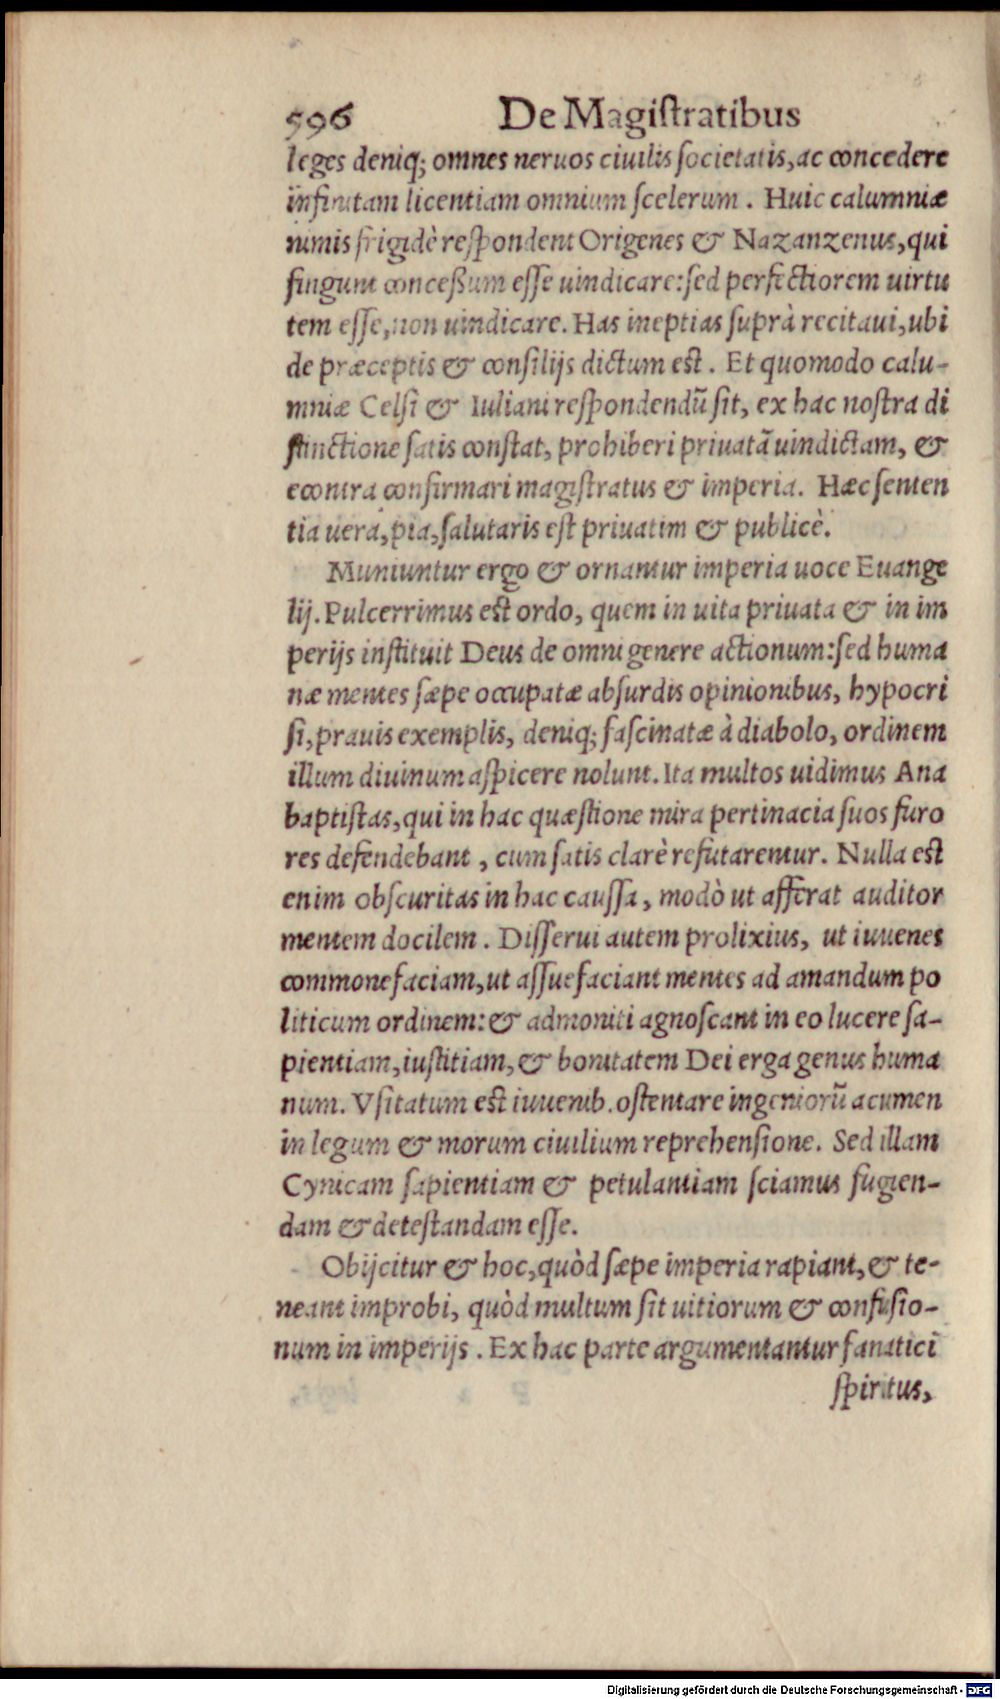 596 De Magistratibus
leges deniq; omnes neruos ciuilis societatis, ac concedere
infinitam licentiam omnium scelerum. Huic calumniæ
nimis frigidè respondent Origenes & Nazanzenus, qui
fingunt concessum esse uindicare: sed perfectiorem uirtu
tem esse, non uindicare. Has ineptias suprà recitaui, ubi
de præceptis & consilijs dictum est. Et quomodo calu-
mniæ Celsi & Iuliani respondendũ sit, ex hac nostra di
stinctione satis constat, prohiberi priuatã uindictam, &
econtra confirmari magistratus & imperia. Hæc senten
tia uera, pia, salutaris est priuatim & publicè.
Muniuntur ergo & ornantur imperia uoce Euange
lij. Pulcerrimus est ordo, quem in uita priuata & in im
perijs instituit Deus de omni genere actionum: sed huma
næ mentes sæpe occupatæ absurdis opinionibus, hypocri
si, prauis exemplis, deniq; fascinatæ à diabolo, ordinem
illum diuinum aspicere nolunt. Ita multos uidimus Ana
baptistas, qui in hac quæstione mira pertinacia suos furo
res defendebant, cum satis clarè refutarentur. Nulla est
enim obscuritas in hac caussa, modò ut afferat auditor
mentem docilem. Disserui autem prolixius, ut iuuenes
commonefaciam, ut assuefaciant mentes ad amandum po
liticum ordinem: & admoniti agnoscant in eo lucere sa-
pientiam, iustitiam, & bonitatem Dei erga genus huma
num. Vsitatum est iuuenib. ostentare ingeniorũ acumen
in legum & morum ciuilium reprehensione. Sed illam
Cynicam sapientiam & petulantiam sciamus fugien-
dam & detestandam esse.
Obijcitur & hoc, quòd sæpe imperia rapiant, & te-
neant improbi, quòd multum sit uitiorum & confusio-
num in imperijs. Ex hac parte argumentantur fanatici
spiritus,
Digitalisierung gefördert durch die Deutsche Forschungsgemeinschaft - DFG